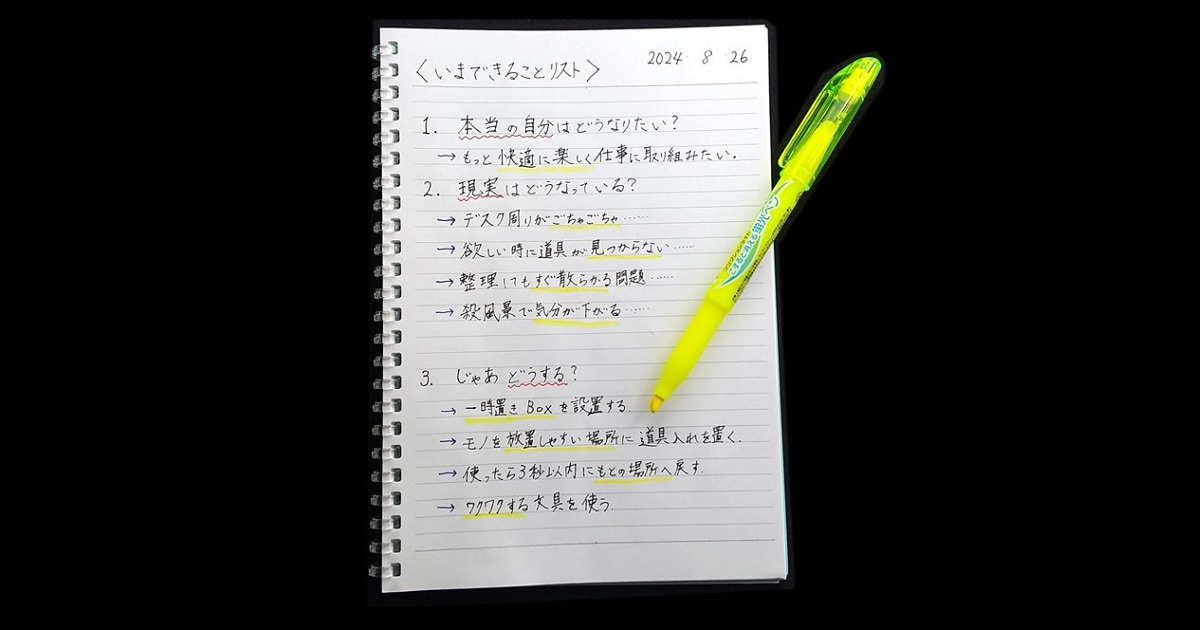 2024 8 26
<いまできることリスト>
1. 本当の自分はどうなりたい?
→もっと快適に楽しく仕事に取り組みたい.
2. 現実はどうなっている?
→デスク周りがごちゃごちゃ……
→欲しい時に道具が見つからない……
→整理してもすぐ散らかる問題……
→殺風景で気分が下がる……
3. じゃあどうする?
→一時置きBoxを設置する.
→モノを放置しやすい場所に道具入れを置く.
→使ったら3秒以内にもとの場所へ戻す.
→ワクワクする文具を使う.
こすると消える蛍光ペン